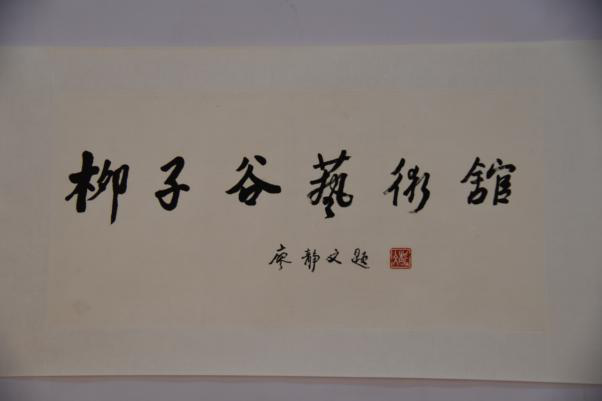 柳子谷藝術舘
廖靜文題